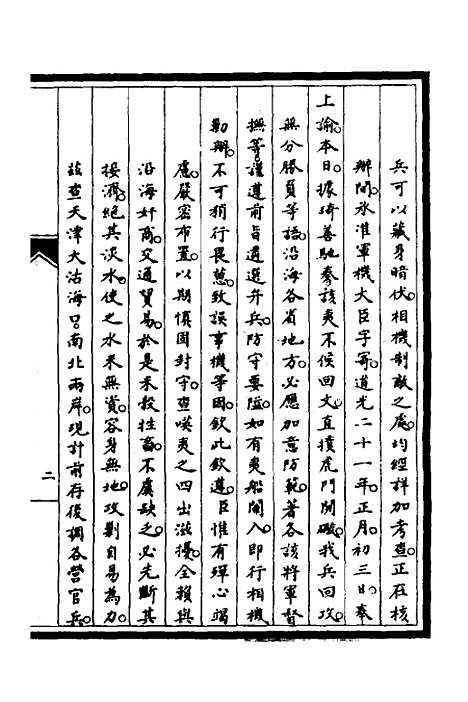 兵可以藏身暗伏。相機制敵之處。均經詳加考查。正在核
辦間。承准軍機大臣字寄。道光二十一年。正月。初三日。奉
上諭。本日。據琦善馳奏。該夷不候回文。直撲虎門開礮。我兵回攻。
無分勝負等語。沿海各省地方。必應加意防範。著各該將軍督
撫等。謹遵前旨遴選弁兵。防守要隘。如有夷船闖入。即行相機
勦辦。不可稍行畏葸。致誤事機等因。欽此欽遵。臣惟有殫心竭
慮。嚴密布置。以期慎固封守。查嘆夷之四出滋擾。全賴與
沿海奸商。交通貿易。於是米穀牲畜。不虞缺乏。必先斷其
接濟。絕其淡水。使之水米無資。容身無地。攻剿自易為力。
茲查天津大沽海口。南北兩岸。現計前存後調各營官兵。
二